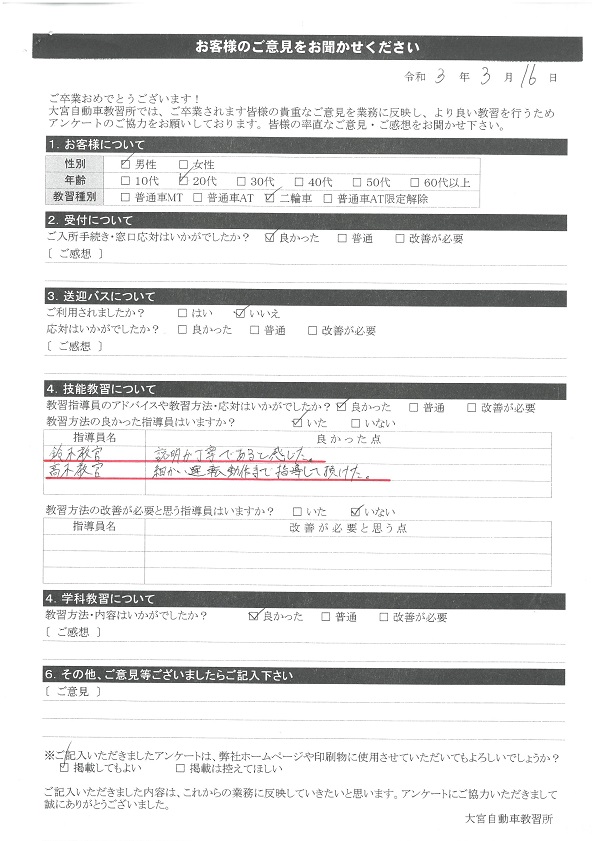 お客様のご意見をお聞かせください
令和 3 年 3 月 16 日
ご卒業おめでとうございます！
大宮自動車教習所では、ご卒業されます皆様の貴重なご意見を業務に反映し、より良い教習を行うため
アンケートのご協力をお願いしております。皆様の率直なご意見・ご感想をお聞かせ下さい。
1．お客様について
性別 ☑男性 □女性
年齢 □10代 ☑20代 □30代 □40代 □50代 □60代以上
教習種別 □普通車MT □普通車AT ☑二輪車 □普通車AT限定解除
2．受付について
ご入所手続き・窓口応対はいかがでしたか？ ☑良かった □普通 □改善が必要
〔 ご感想 〕
3．送迎バスについて
ご利用されましたか？ □はい ☑いいえ
応対はいかがでしたか？ □良かった □普通 □改善が必要
〔 ご感想 〕
4．技能教習について
教習指導員のアドバイスや教習方法・応対はいかがでしたか？ ☑良かった □普通 □改善が必要
教習方法の良かった指導員はいますか？ ☑いた □いない
指導員名 良かった点
鈴木教官 説明が丁寧であると感じた。
高木教官 細かい運転動作まで指導して頂けた。
教習方法の改善が必要と思う指導員はいますか？ □いた ☑いない
指導員名 改善が必要と思う点
4．学科教習について
教習方法・内容はいかがでしたか？ ☑良かった □普通 □改善が必要
〔 ご感想 〕
6．その他、ご意見等ございましたらご記入下さい
〔 ご意見 〕
※ご記入いただきましたアンケートは、弊社ホームページや印刷物に使用させていただいてもよろしいでしょうか？
☑掲載してもよい □掲載は控えてほしい
ご記入いただきました内容は、これからの業務に反映していきたいと思います。アンケートにご協力いただきまして
誠にありがとうございました。
大宮自動車教習所